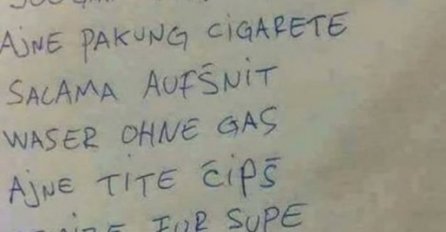 AJNE PAKUNG CIGARETE
SALAMA AUFŠNIT
WASER OHNE GAS
AJNE TITE ČIPŠ
FUR SUPE